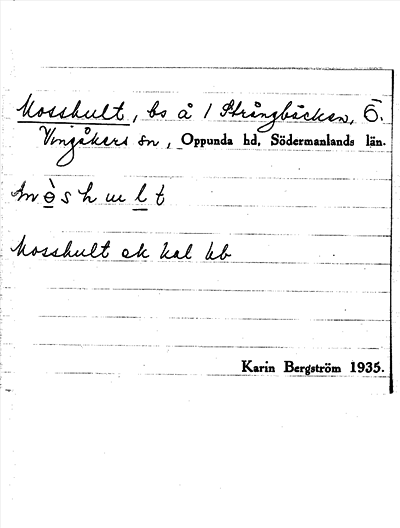 Mosshult, bs å 1 Strångbäcken, Ö.
Vingåkers sn, Oppunda hd, Södermanlands län.
mòshult
Mosshult ek kal bb
Karin Bergström 1935.